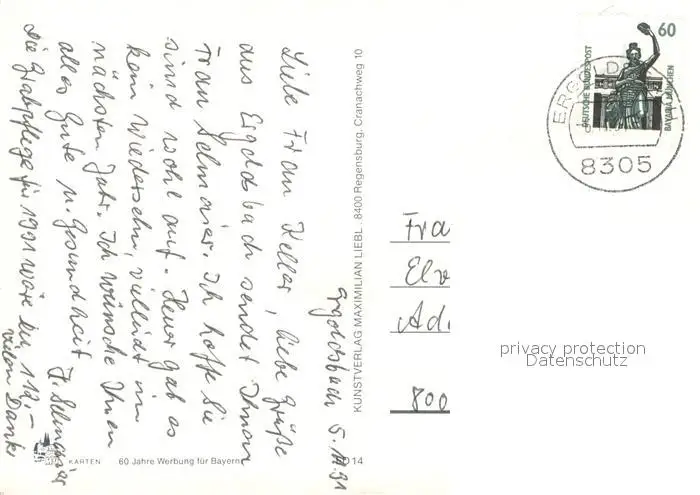 Ergoldsbach 5.11.91
Liebe Frau Keller, liebe Grüße
aus Ergoldsbach sendet Ihnen
Frau Selmaier. Ich hoffe Sie
sind wohl auf. Heuer gab es
kein Wiedersehn, vielleicht im
nächsten Jahr. Ich wünsche Ihnen
alles Gute u. Gesundheit
die Grabpflege für 1991 wäre
112,-
vielen Dank
KUNSTVERLAG MAXIMILIAN LIEBL . 8400 Regensburg, Cranachweg 10
KARTEN
60 Jahre Werbung für Bayern
014
60
DEUTSCHE BUNDESPOST
BAVARIA MÜNCHEN
8305
Fra
Elv
Ad
800
privacy protection
Datenschutz